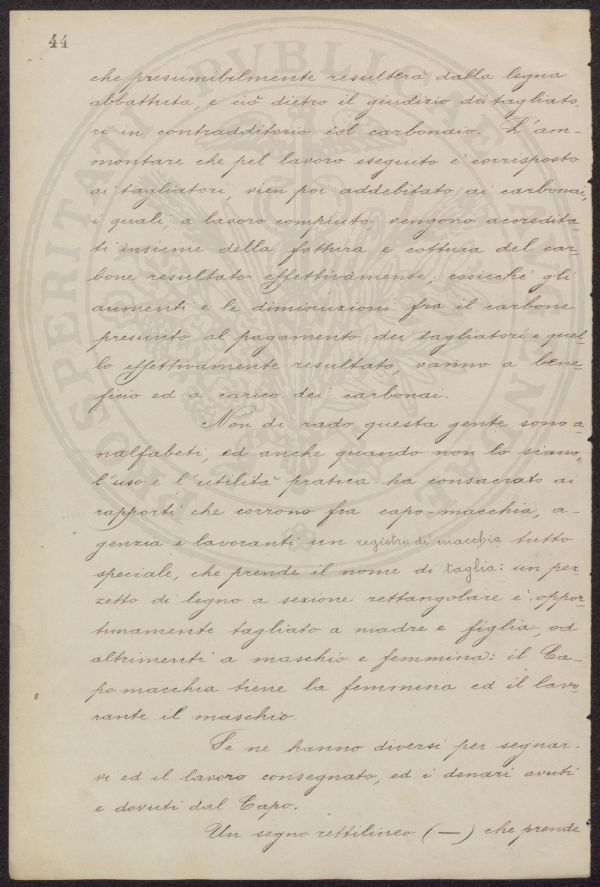 44
che presumibilmente resulterà dalla legna
abbattuta, e ciò dietro il giudizio dei tagliato-
ri in contradditorio col carbonaio. L'am-
montare che pel lavoro eseguito è corrisposto
ai tagliatori, vien poi addebitato ai carbonai,
i quali, a lavoro compiuto, vengono accredita-
ti insieme della fattura e cottura del car-
bone resultato effettivamente, cosicchè gli
aumenti e le diminuzioni fra il carbone
presunto al pagamento dei tagliatori e quel-
lo effettivamente resultato, vanno a bene-
ficio ed a carico dei carbonai.
Non di rado questa gente sono a-
nalfabeti, ed anche quando non lo siano,
l'uso e l'utilità pratica ha consacrato ai
rapporti che corrono fra capo-macchia, a-
genzia e lavoranti un registro di macchia tutto
speciale, che prende il nome di taglia: un pez-
zetto di legno a sezione rettangolare è oppor-
tunamente tagliato a madre e figlia, od
altrimenti a maschio e femmina: il Ca-
po-macchia tiene la femmina ed il lavo-
rante il maschio.
Se ne hanno diversi per segnar-
vi ed il lavoro consegnato, ed i denari avuti
e dovuti dal Capo.
Un segno rettilineo (—) che prende